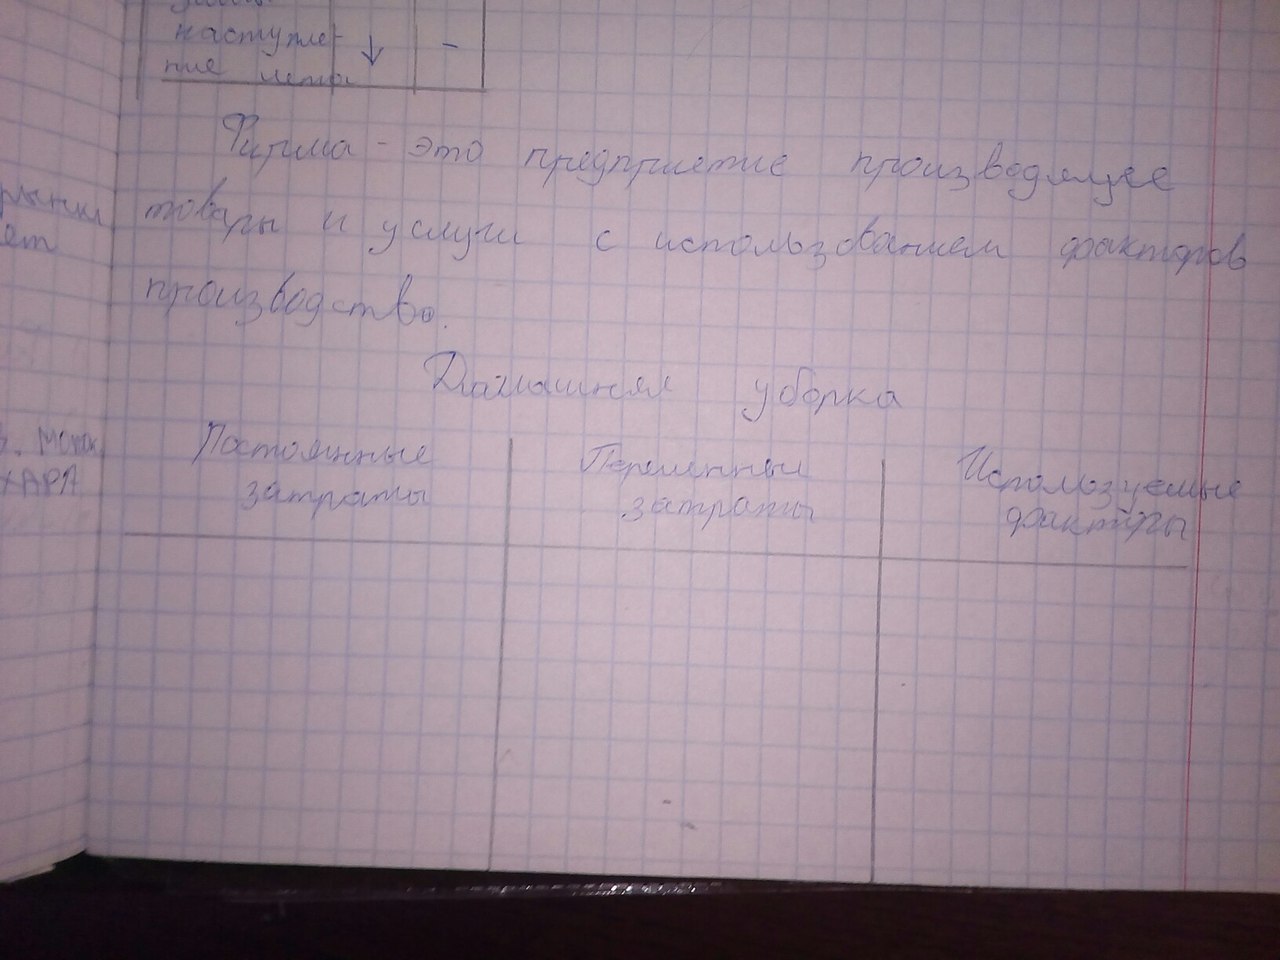 наступле-
ние лета ↓ -
Фирма - это предприятие производящее
товары и услуги с использованием факторов
производство.
Домашняя уборка
Постоянные
затраты
Переменные
затраты
Используемые
факторы
рынки
ет
ХАРА